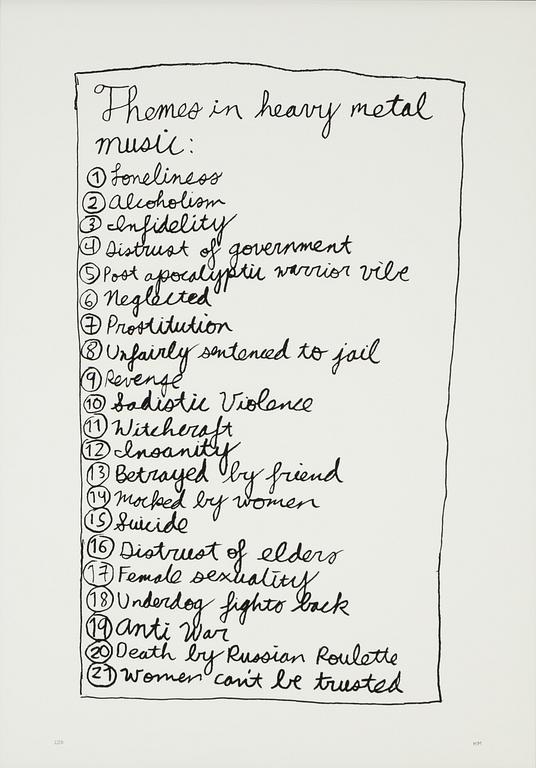 Themes in heavy metal
music:
1 Loneliness
2 Alcoholism
3 Infidelity
4 Distrust of government
5 Post apocalyptic warrior vibe
6 Neglected
7 Prostitution
8 Unfairly sentenced to jail
9 Revenge
10 Sadistic Violence
11 Witchcraft
12 Insanity
13 Betrayed by friend
14 Mocked by women
15 Suicide
16 Distrust of elders
17 Female sexuality
18 Underdog fights back
19 Anti War
20 Death by Russian Roulette
21 Women can't be trusted